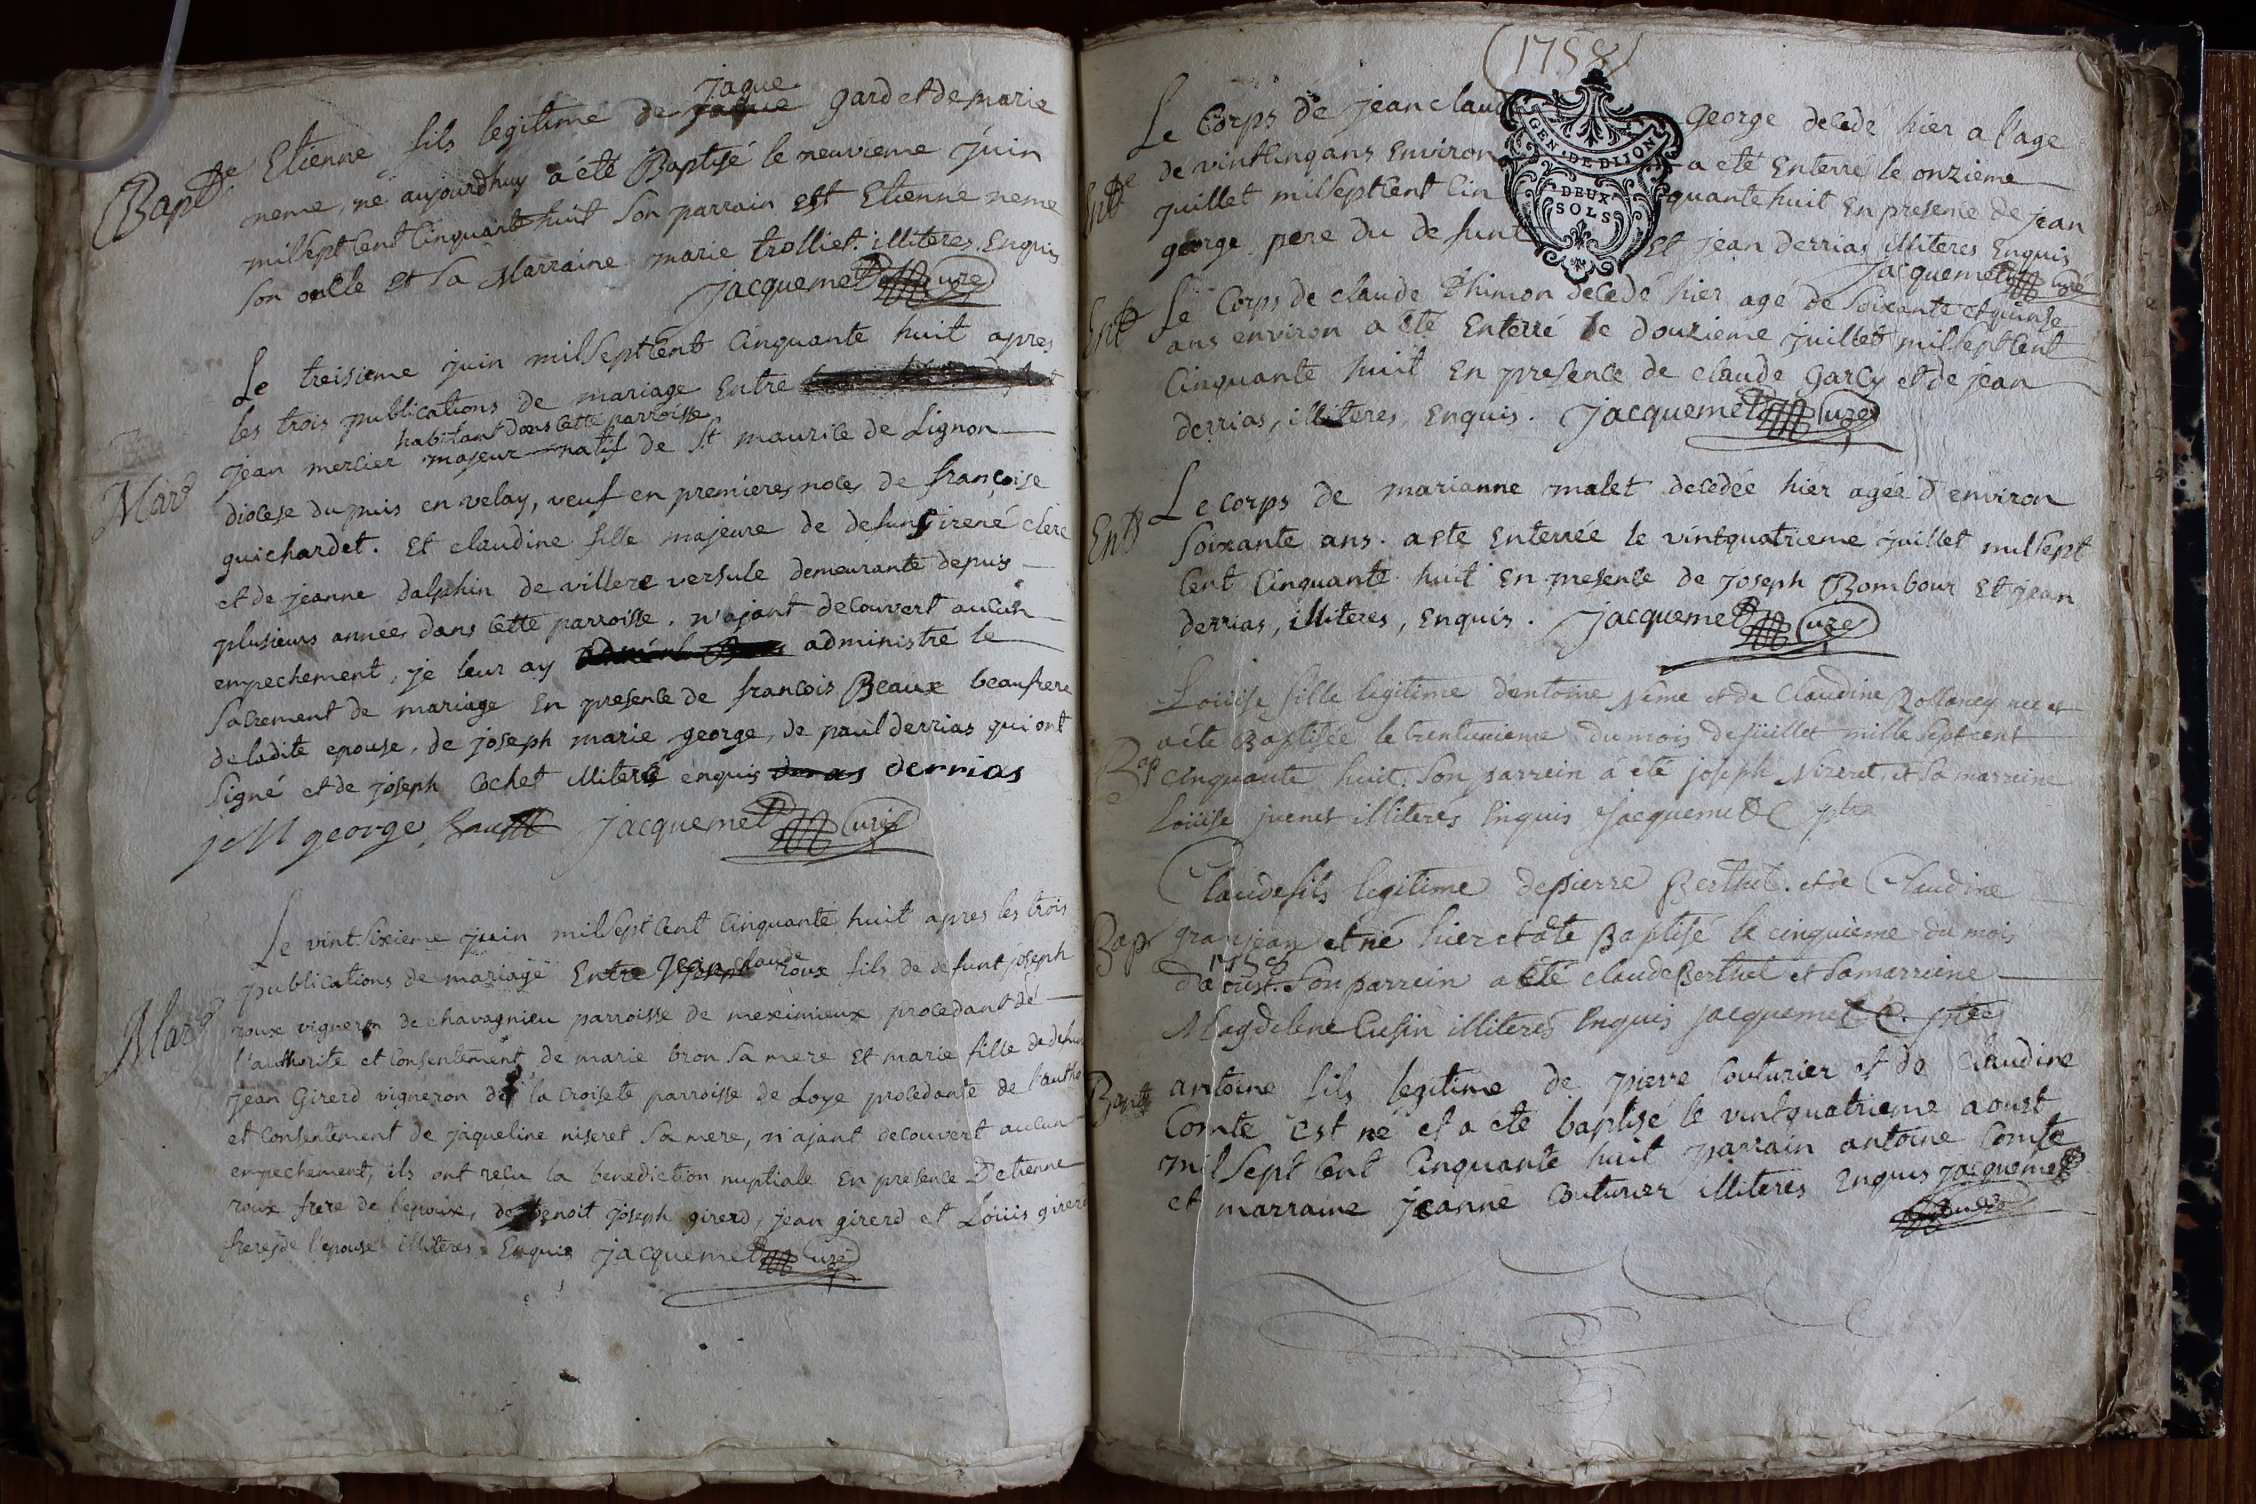 jaque
Bapte Etienne fils legitime de jaque gard et de marie
neme, né aujourdhuy a été Baptisé le neuvieme juin
milseptcent Cinquante huit Son parrain est Etienne neme
son oncle et sa Marraine marie trolliet. illiteres Enquis
jacquemet Curé
Le treisieme juin milseptcent Cinquante huit apres
les trois publications de mariage Entre
habitant dans cette parroisse
jean mercier majeur natif de St maurice de Lignon
Mare
diocese du puis en velay, veuf en premieres noces de françoise
guichardet. Et claudine fille majeure de defunt irené clerc
et de jeanne dalphin de villere versule demeurante depuis
plusieurs années dans cette parroisse. n'ajant decouvert aucun
empechement, je leur ay administre le
Sacrement de mariage En presence de francois Beaux beaufrere
de ladite epouse, de joseph marie george, de paul derrias qui ont
signé et de joseph Cochet illiteré enquis derrias
j M george jacquemet Curé
Le vintsixieme juin milseptcent Cinquante huit apres les trois
publications de mariage Entre jean claude roux fils de defunt joseph
Marе roux vigneron de chavagnieu parroisse de meximieux procedant de
l'authorité et Consentement de marie bron sa mere Et marie fille de defunt
jean Girerd vigneron de la croisete parroisse de Loye procedante de l'autho
et Consentement de jaqueline niseret sa mere, n'ajant decouvert aucun
empechement, ils ont recu la benediction nuptiale En presence D'etienne
roux frere de l'epoux, de benoit joseph girerd, jean girerd et Loüis girerd
freres de l'epouse illiteres Enquis jacquemet Curé
(1758)
GEN. DE DIJON
DEUX
SOLS
Le Corps de jean claude George decede hier a l'age
Ente de vintcinq ans Environ a eté Enterré le onzieme
juillet milseptcent Cinquante huit En presence de jean
george pere du defunt Et jean derrias illiteres Enquis
jacquemet Curé
Ente Le Corps de claude Thimon decedé hier agé de soixante et quinse
ans environ a eté Enterré le douzieme juillet milseptcent
Cinquante huit En presence de claude Garcy et de jean
derrias, illiteres, Enquis. jacquemet Curé
Le corps de marianne malet decedée hier agée d'environ
Ente Soixante ans. a ete Enterrée le vintquatrieme juillet milsept
cent Cinquante huit En presence de joseph Bombour Et jean
derrias, illiteres, Enquis. jacquemet Curé
Loüise fille legitime d'entoine Neme et de Claudine née et
a été Baptisée le trentunieme du mois de jüillet mille sept cent
Bap cinquante huit. Son parrein a été joseph Nizeret, et sa marreine
Loüise juenet illiteres Enquis Jacquemet ptre
Claude fils legitime de pierre Berthet. et de Claudine
Bap granjean et né hier et a été Baptisé le cinquieme du mois
1758
d'aoust. Son parrein a été claude Berthet et sa marreine
Magdelene Cusin illiteres Enquis jacquemet ptre
Bapte antoine fils legitime de pierre Couturier et de claudine
Comte est né et a été baptisé le vintquatrieme aoust
mil Sept Cent Cinquante huit parrain antoine Comte
et marraine jeanne Couturier illiteres Enquis jacquemet
Curé